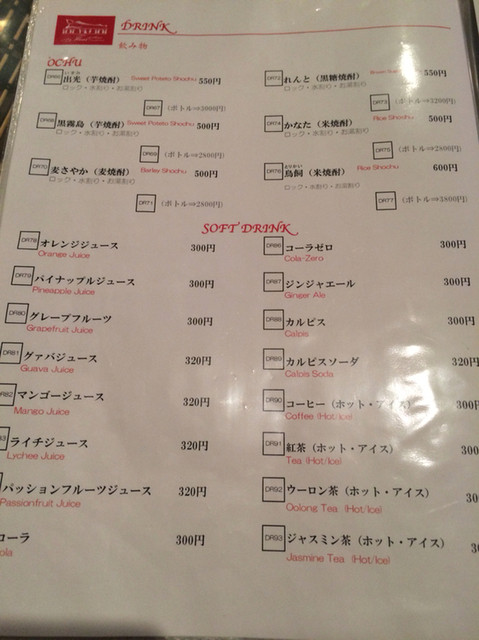 DRINK
飲み物
OCHU
DR66 出光（芋焼酎） Sweet Potato Shochu 550円
ロック・水割り・お湯割り
DR67 （ボトル⇒3000円）
DR68 黒霧島（芋焼酎） Sweet Potato Shochu 500円
ロック・水割り・お湯割り
DR69 （ボトル⇒2800円）
DR70 麦さやか（麦焼酎） Barley Shochu 500円
ロック・水割り・お湯割り
DR71 （ボトル⇒2800円）
DR72 れんと（黒糖焼酎） 550円
ロック・水割り・お湯割り
DR73 （ボトル⇒3200円）
DR74 かなた（米焼酎） Rice Shochu 500円
ロック・水割り・お湯割り
DR75 （ボトル⇒2800円）
とりかい
DR76 鳥飼（米焼酎） Rice Shochu 600円
ロック・水割り・お湯割り
DR77 （ボトル⇒3800円）
SOFT DRINK
DR78 オレンジジュース 300円
Orange Juice
DR79 パイナップルジュース 300円
Pineapple Juice
DR80 グレープフルーツ 300円
Grapefruit Juice
DR81 グァバジュース 320円
Guava Juice
DR82 マンゴージュース 320円
Mango Juice
83 ライチジュース 320円
Lychee Juice
パッションフルーツジュース 320円
Passionfruit Juice
コーラ 300円
ola
DR86 コーラゼロ 300円
Cola-Zero
DR87 ジンジャエール 300円
Ginger Ale
DR88 カルピス 300円
Calpis
DR89 カルピスソーダ 320円
Calpis Soda
DR90 コーヒー（ホット・アイス） 300円
Coffee (Hot/Ice)
DR91 紅茶（ホット・アイス） 300
Tea (Hot/Ice)
DR92 ウーロン茶（ホット・アイス） 30
Oolong Tea (Hot/Ice)
DR93 ジャスミン茶（ホット・アイス） 3
Jasmine Tea (Hot/Ice)